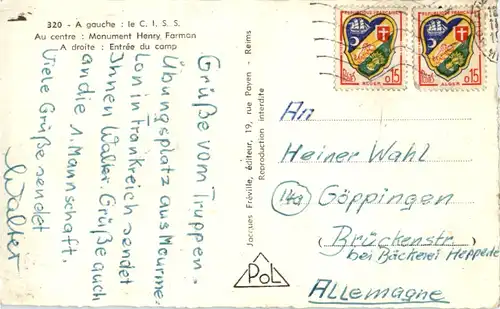 320 - A gauche : le C. I. S. S.
Au centre : Monument Henry Farman
A droite : Entrée du camp
Grüße vom Truppen-
Übungsplatz aus Mourme-
lon in Frankreich sendet
Ihnen Walter. Grüße auch
an die 1. Mannschaft.
Viele Grüße sendet
Walter
Jacques Fréville, éditeur, 19, rue Payen - Reims
Reproduction interdite
POL
ALGER
0,15
ALGER
0,15
An
Heiner Wahl
(14a) Göppingen
Brückenstr.
bei Bäckerei Hepperle
Allemagne